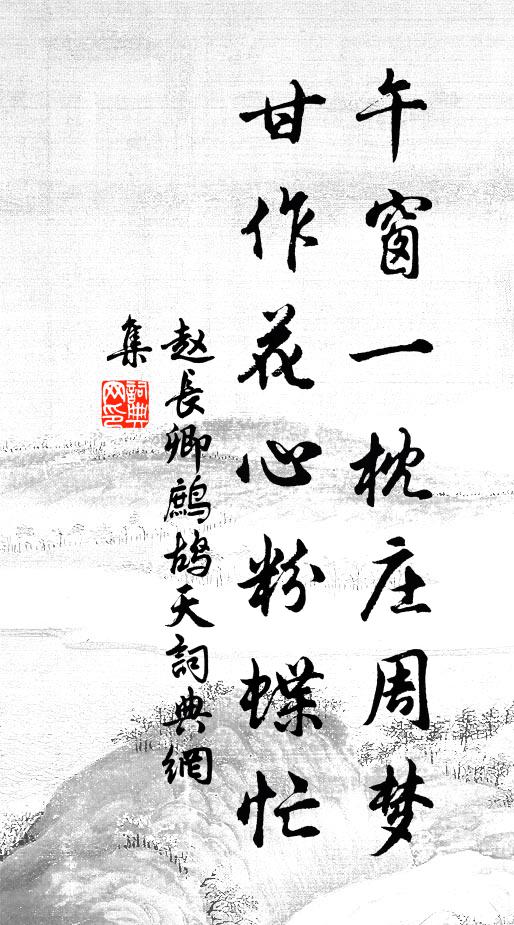 午窗一枕庄周梦
甘作花心粉蝶忙
赵長卿鷓鴣天詞典網
集
詞典
网印